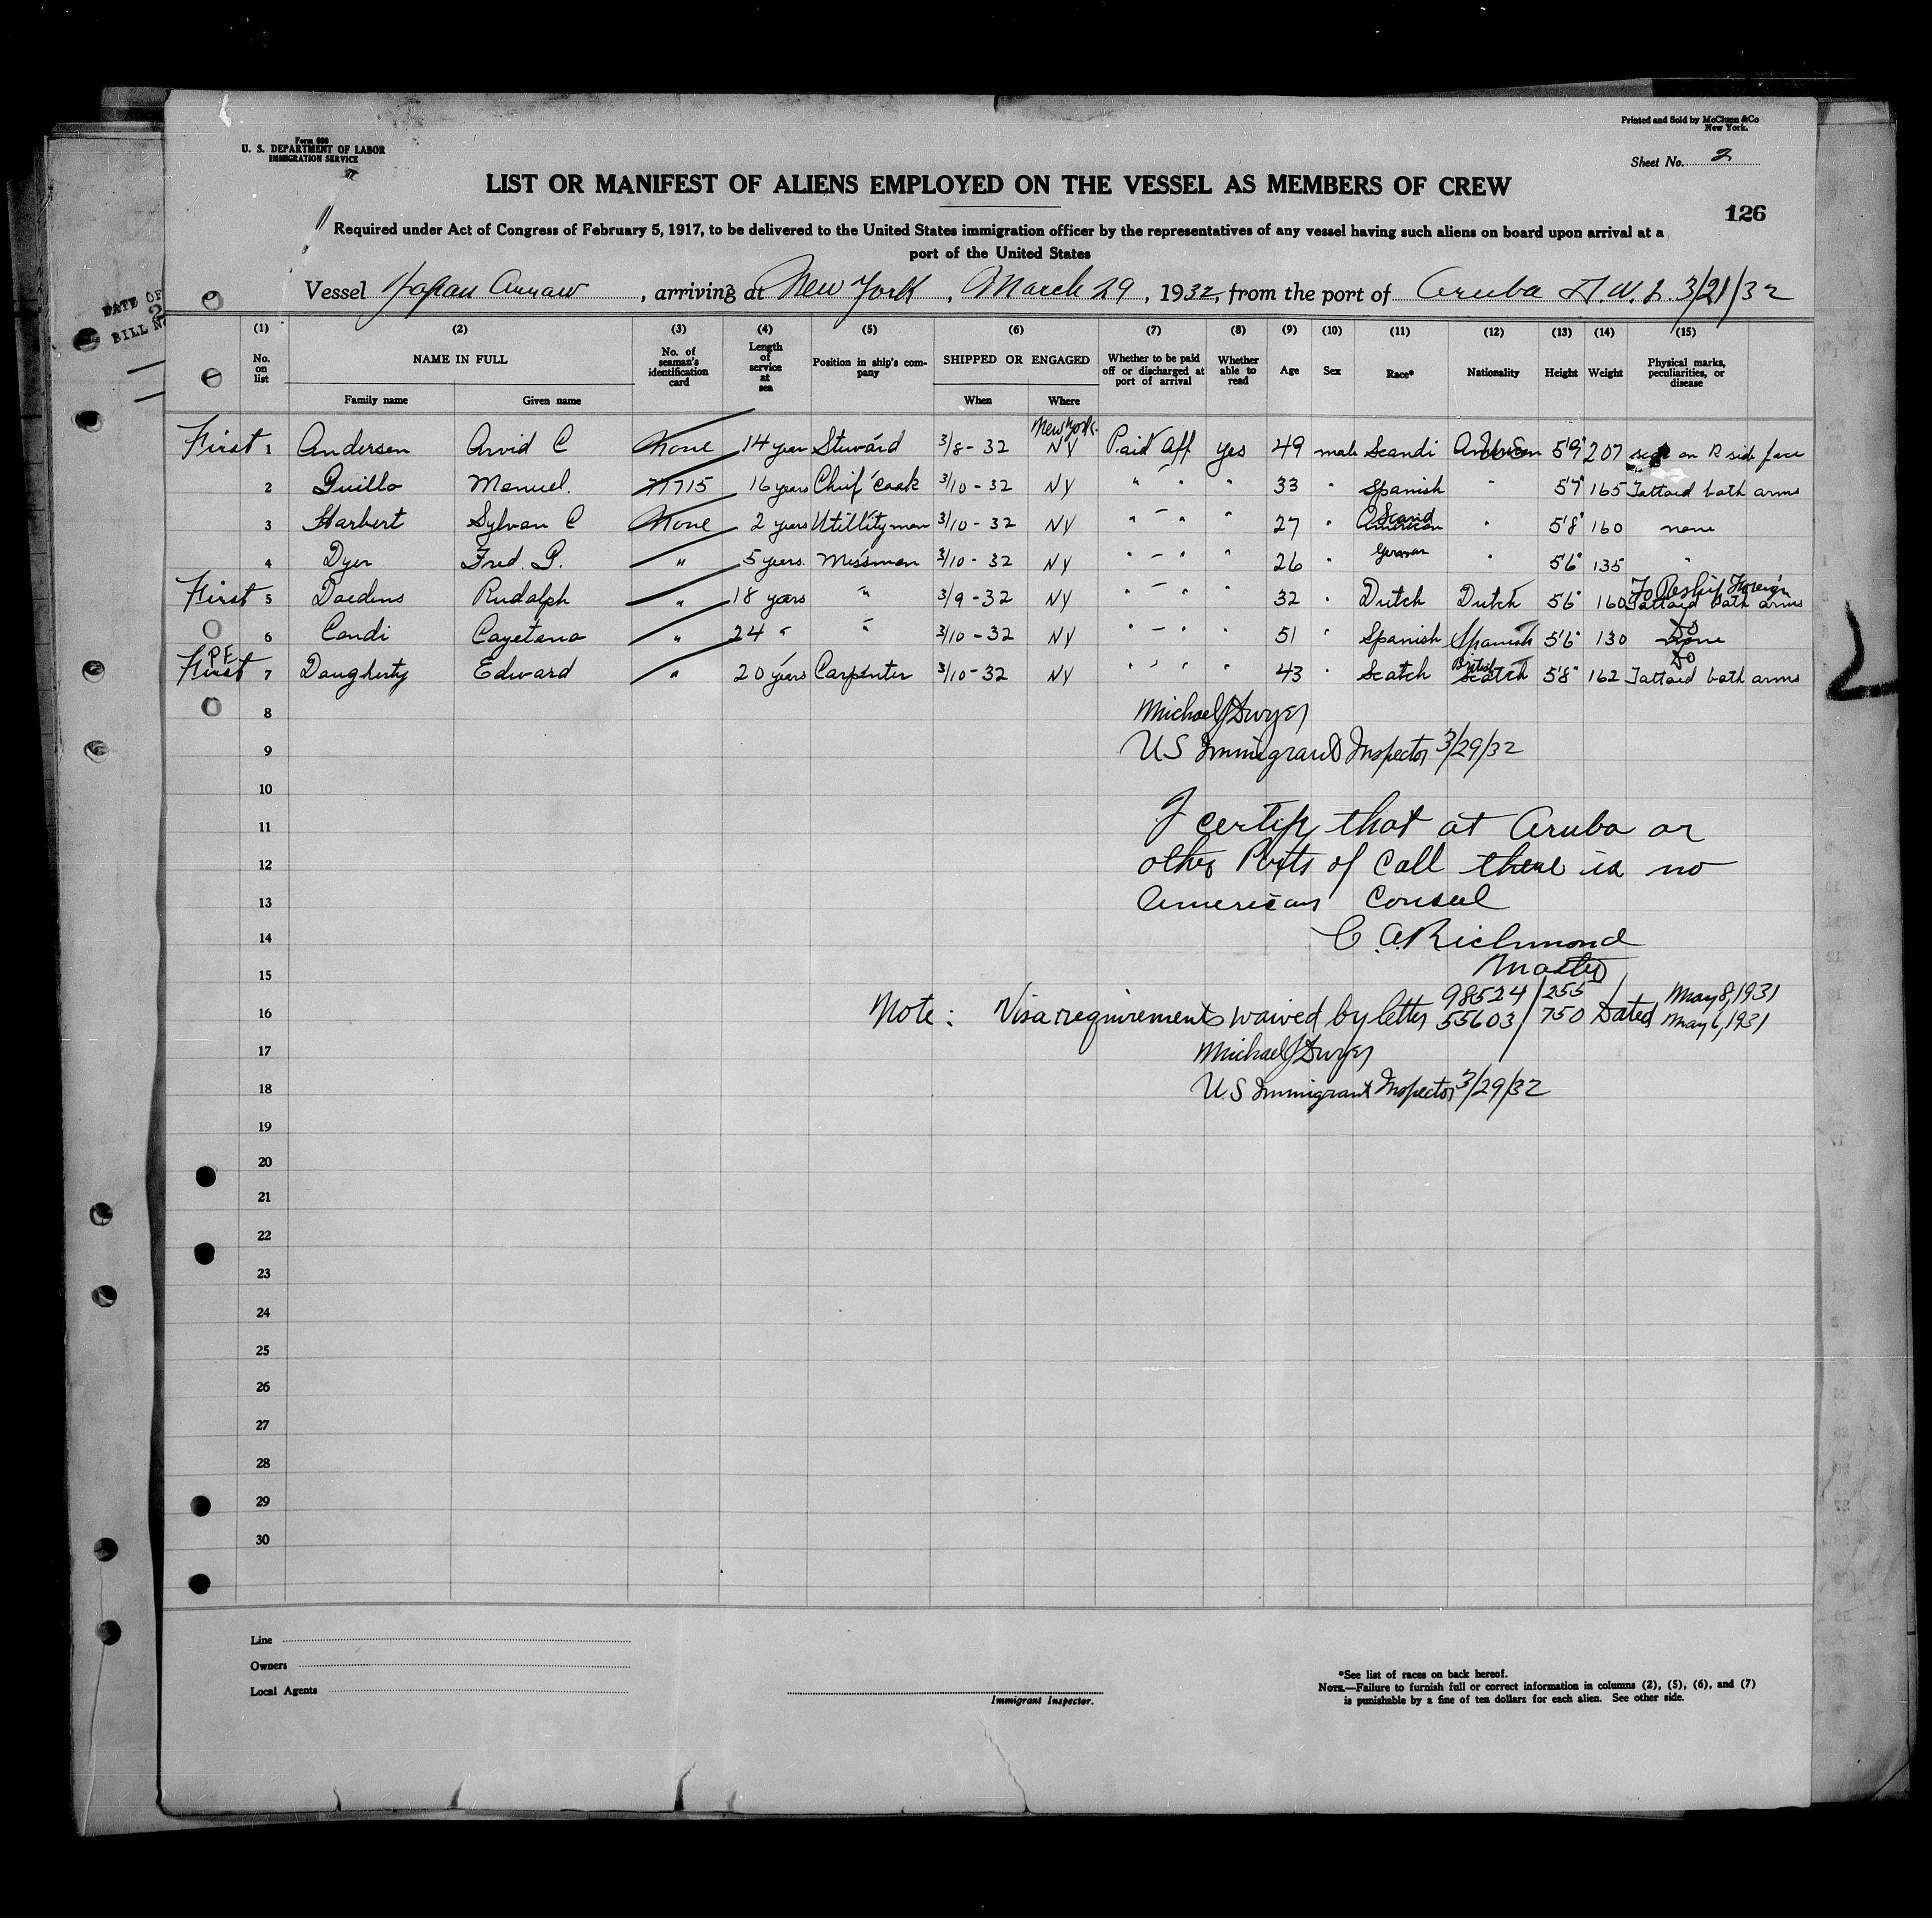 Form 680
U. S. DEPARTMENT OF LABOR
IMMIGRATION SERVICE
Printed and Sold by McClunn &Co
New York.
Sheet No. 2
LIST OR MANIFEST OF ALIENS EMPLOYED ON THE VESSEL AS MEMBERS OF CREW
126
Required under Act of Congress of February 5, 1917, to be delivered to the United States immigration officer by the representatives of any vessel having such aliens on board upon arrival at a
port of the United States
Vessel Japan Arraw, arriving at New York, March 29, 1932, from the port of Aruba D.W.I. 3/21/32
DATE OF
2
BILL N
(1) (2) (3) (4) (5) (6) (7) (8) (9) (10) (11) (12) (13) (14) (15)
No. on list NAME IN FULL No. of seaman's identification card Length of service at sea Position in ship's company SHIPPED OR ENGAGED Whether to be paid off or discharged at port of arrival Whether able to read Age Sex Race* Nationality Height Weight Physical marks, peculiarities, or disease
Family name Given name When Where
New York
First 1 Andersen Arvid C None 14 year Steward 3/8-32 NY Paid aff yes 49 male Scandi 5'9" 207 on R side face
2 Guillo Manuel. 77715 16 years Chief Cook 3/10-32 NY " " " 33 " Spanish " 5'7" 165 Tattaed bath arms
Scand
3 Harbert Sylvan C None 2 years Utillityman 3/10-32 NY " " " 27 " American " 5'8" 160 none
4 Dyer Fred. G. " 5 years. Messman 3/10-32 NY " - " " 26 " German " 5'6" 135 "
To Reship Foreign
First 5 Daedens Rudalph " 18 years " 3/9-32 NY " - " " 32 " Dutch Dutch 5'6" 160 Tattaed bath arms
Do
6 Candi Cayetano " 24 " " 3/10-32 NY " - " " 51 " Spanish Spanish 5'6" 130 none
P.F. British Do
First 7 Daugherty Edward " 20 years Carpenter 3/10-32 NY " " " 43 " Scatch Scatch 5'8" 162 Tattaed bath arms
8 Michael J Dwyer
9 US Immigrant Inspector 3/29/32
10
11 I certify that at Aruba or
12 other Ports of Call there is no
13 American Consul
14 C. A. Richmond
15 Master
98524/255 May 8, 1931
16 Note: Visa requirements waived by letter 55603/750 Dated May 6, 1931
17 Michael J Dwyer
18 U.S Immigrant Inspector 3/29/32
19
20
21
22
23
24
25
26
27
28
29
30
Line
Owners
Local Agents
Immigrant Inspector.
*See list of races on back hereof.
NOTE.—Failure to furnish full or correct information in columns (2), (5), (6), and (7)
is punishable by a fine of ten dollars for each alien. See other side.